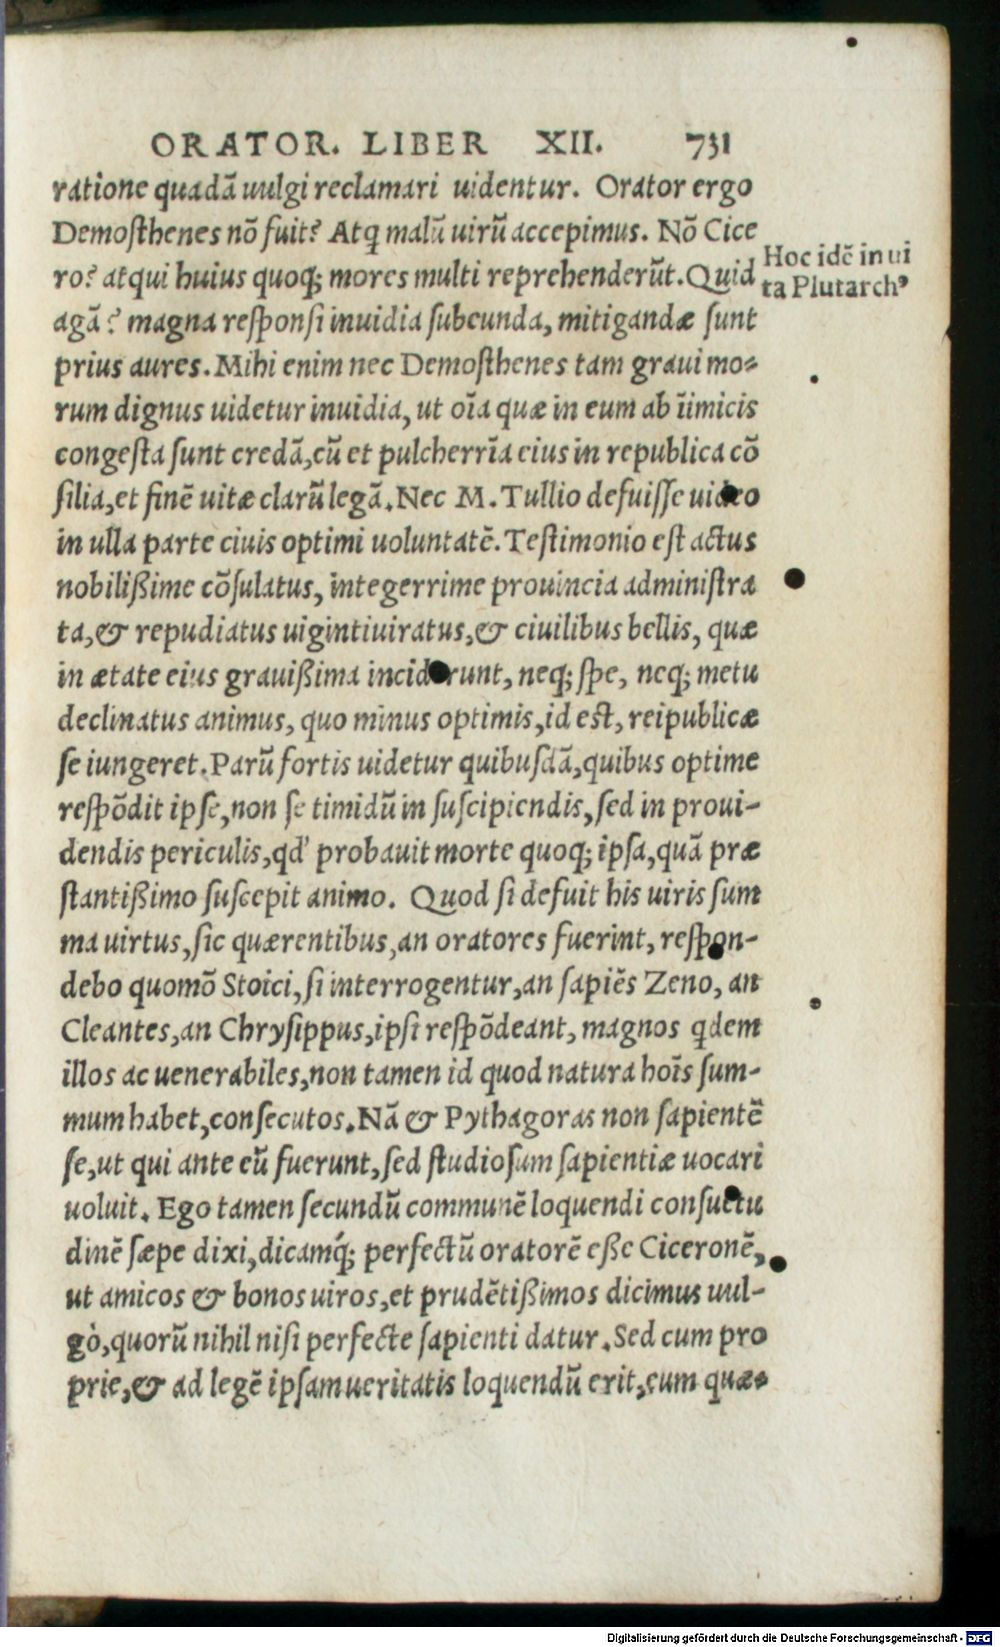 ORATOR. LIBER XII. 731
ratione quadā uulgi reclamari uidentur. Orator ergo
Demosthenes nō fuit? Atq malū uirū accepimus. Nō Cice
ro? atqui huius quoq; mores multi reprehenderūt. Quid
Hoc idē in ui
ta Plutarchꝰ
agā? magna responsi inuidia subeunda, mitigandæ sunt
prius aures. Mihi enim nec Demosthenes tam graui mo-
rum dignus uidetur inuidia, ut oīa quæ in eum ab iīmicis
congesta sunt credā, cū et pulcherrīa eius in republica cō
silia, et finē uitæ clarū legā. Nec M. Tullio defuisse uideo
in ulla parte ciuis optimi uoluntatē. Testimonio est actus
nobilißime cōsulatus, integerrime prouincia administra
ta, & repudiatus uigintiuiratus, & ciuilibus bellis, quæ
in ætate eius grauißima inciderunt, neq; spe, neq; metu
declinatus animus, quo minus optimis, id est, reipublicæ
se iungeret. Parū fortis uidetur quibusdā, quibus optime
respōdit ipse, non se timidū in suscipiendis, sed in proui-
dendis periculis, qd' probauit morte quoq; ipsa, quā præ
stantißimo suscepit animo. Quod si defuit his uiris sum
ma uirtus, sic quærentibus, an oratores fuerint, respon-
debo quomō Stoici, si interrogentur, an sapiēs Zeno, an
Cleantes, an Chrysippus, ipsi respōdeant, magnos qdem
illos ac uenerabiles, non tamen id quod natura hoīs sum-
mum habet, consecutos. Nā & Pythagoras non sapientē
se, ut qui ante eū fuerunt, sed studiosum sapientiæ uocari
uoluit. Ego tamen secundū communē loquendi consuetu
dinē sæpe dixi, dicamq́; perfectū oratorē eße Ciceronē,
ut amicos & bonos uiros, et prudētißimos dicimus uul-
gò, quorū nihil nisi perfecte sapienti datur. Sed cum pro
prie, & ad legē ipsam ueritatis loquendū erit, eum quæ-
Digitalisierung gefördert durch die Deutsche Forschungsgemeinschaft - DFG